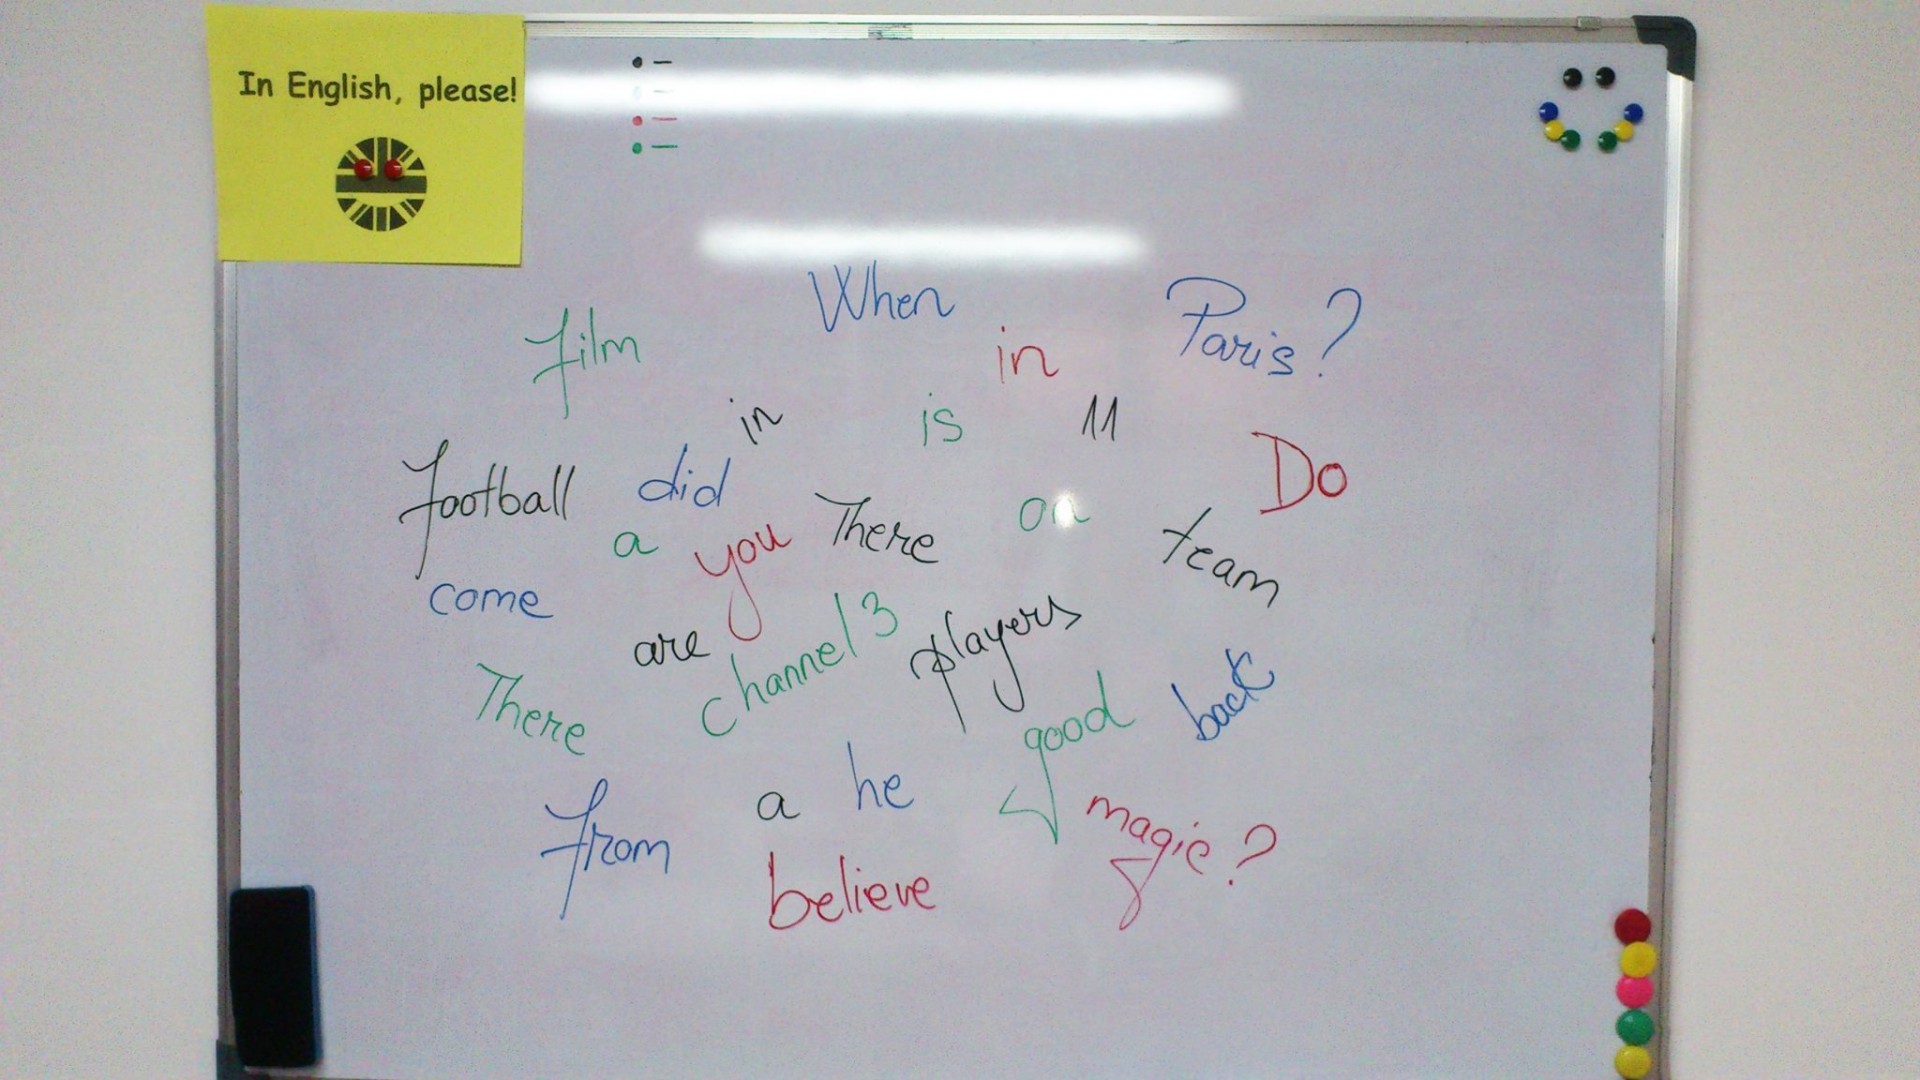 In English, please!
When
Film in Paris?
in is 11
football did Do
a you There on team
come
are channel 3 players
There good back
from a he magic?
believe